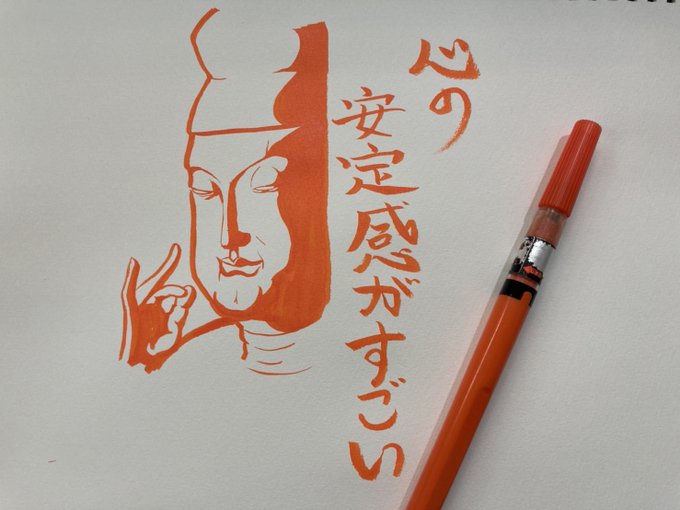 心の
安定感がすごい